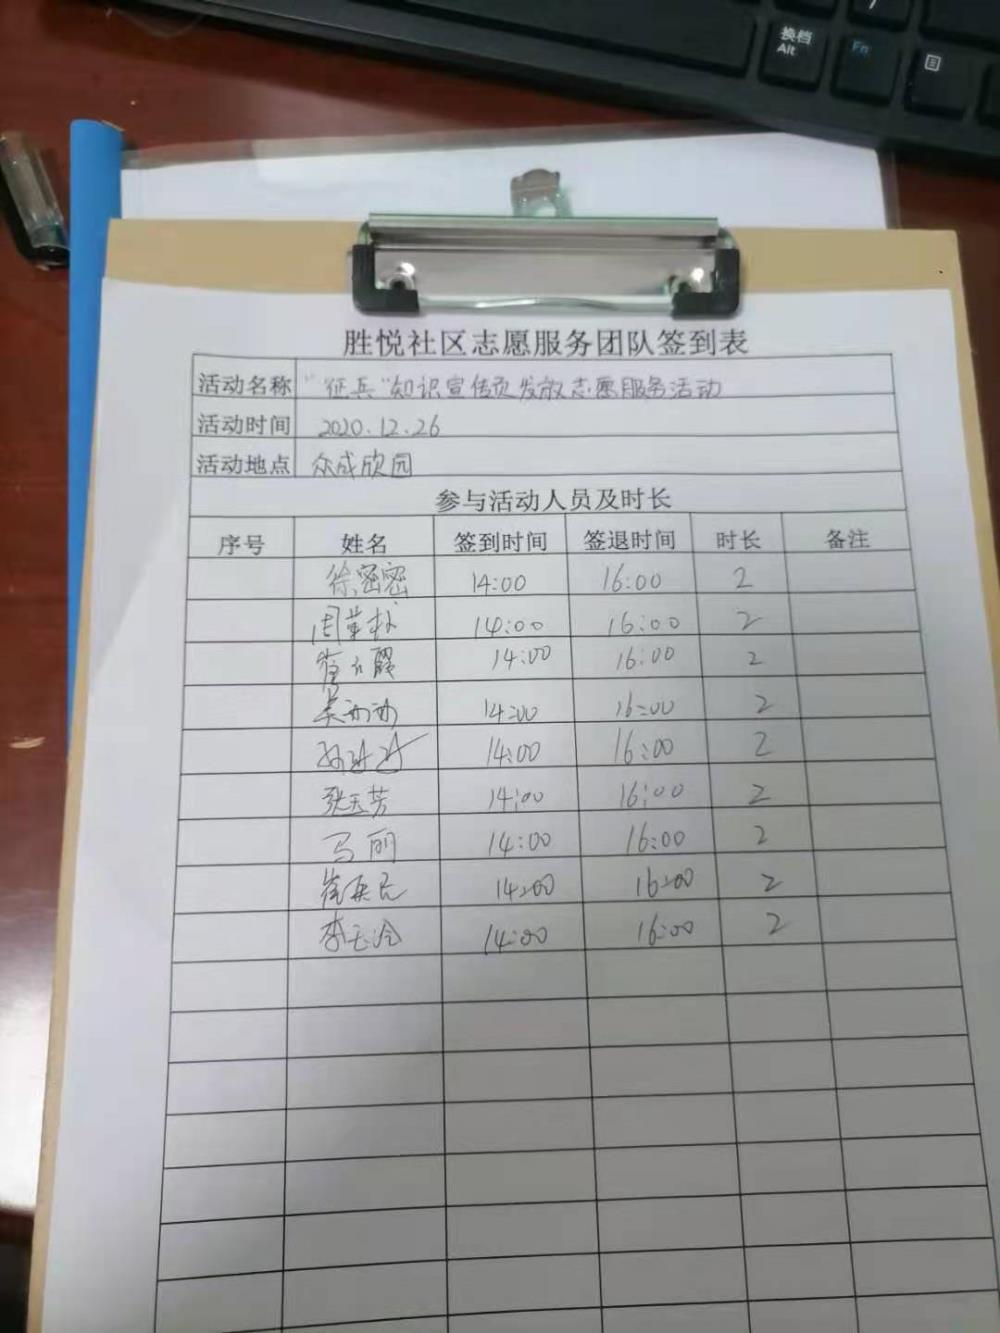 换档
Alt
Fn
胜悦社区志愿服务团队签到表
活动名称 "征兵"知识宣传页发放志愿服务活动
活动时间 2020.12.26
活动地点 众成欣园
参与活动人员及时长
序号 姓名 签到时间 签退时间 时长 备注
徐密密 14:00 16:00 2
周 14:00 16:00 2
14:00 16:00 2
吴 14:00 16:00 2
14:00 16:00 2
张玉芳 14:00 16:00 2
马丽 14:00 16:00 2
崔 14:00 16:00 2
李玉冷 14:00 16:00 2